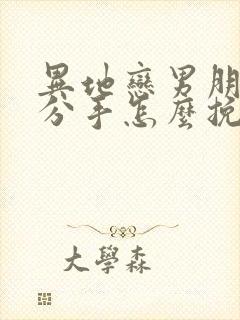 異地戀男朋
分手怎麼挽
大學森